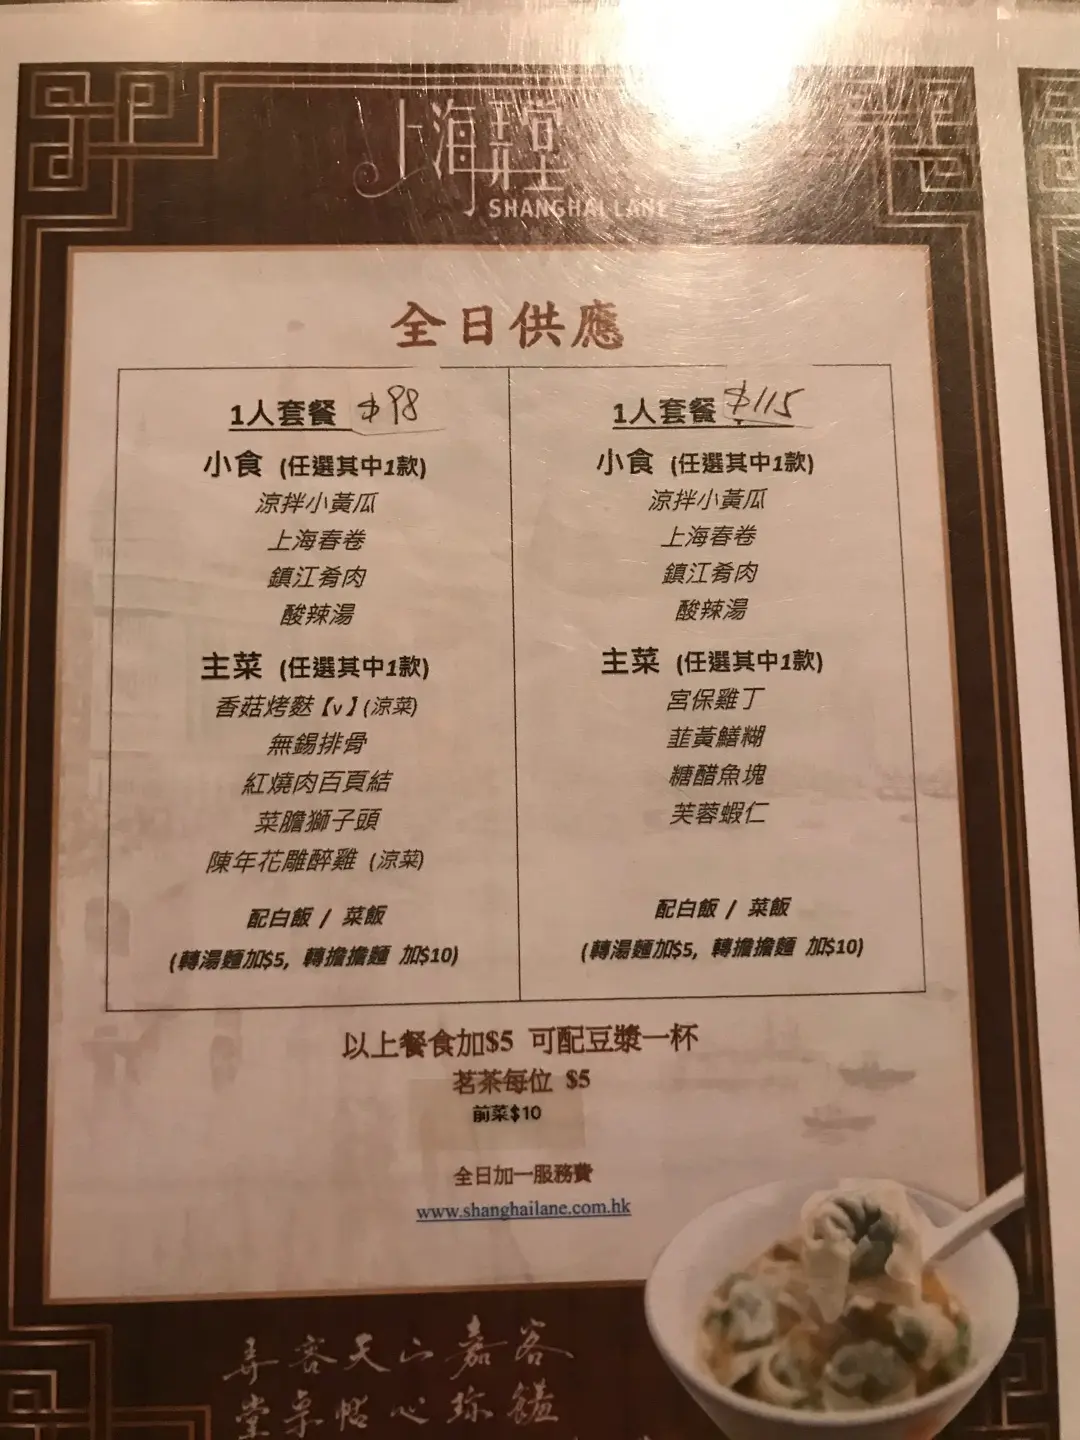 上海弄堂
SHANGHAI LANE
全日供應
1人套餐 $98
小食 (任選其中1款)
涼拌小黃瓜
上海春卷
鎮江肴肉
酸辣湯
主菜 (任選其中1款)
香菇烤麩【v】(涼菜)
無錫排骨
紅燒肉百頁結
菜膽獅子頭
陳年花雕醉雞 (涼菜)
配白飯 / 菜飯
(轉湯麵加$5, 轉擔擔麵 加$10)
1人套餐 $115
小食 (任選其中1款)
涼拌小黃瓜
上海春卷
鎮江肴肉
酸辣湯
主菜 (任選其中1款)
宮保雞丁
韮黃鱔糊
糖醋魚塊
芙蓉蝦仁
配白飯 / 菜飯
(轉湯麵加$5, 轉擔擔麵 加$10)
以上餐食加$5 可配豆漿一杯
茗茶每位 $5
前菜$10
全日加一服務費
www.shanghailane.com.hk